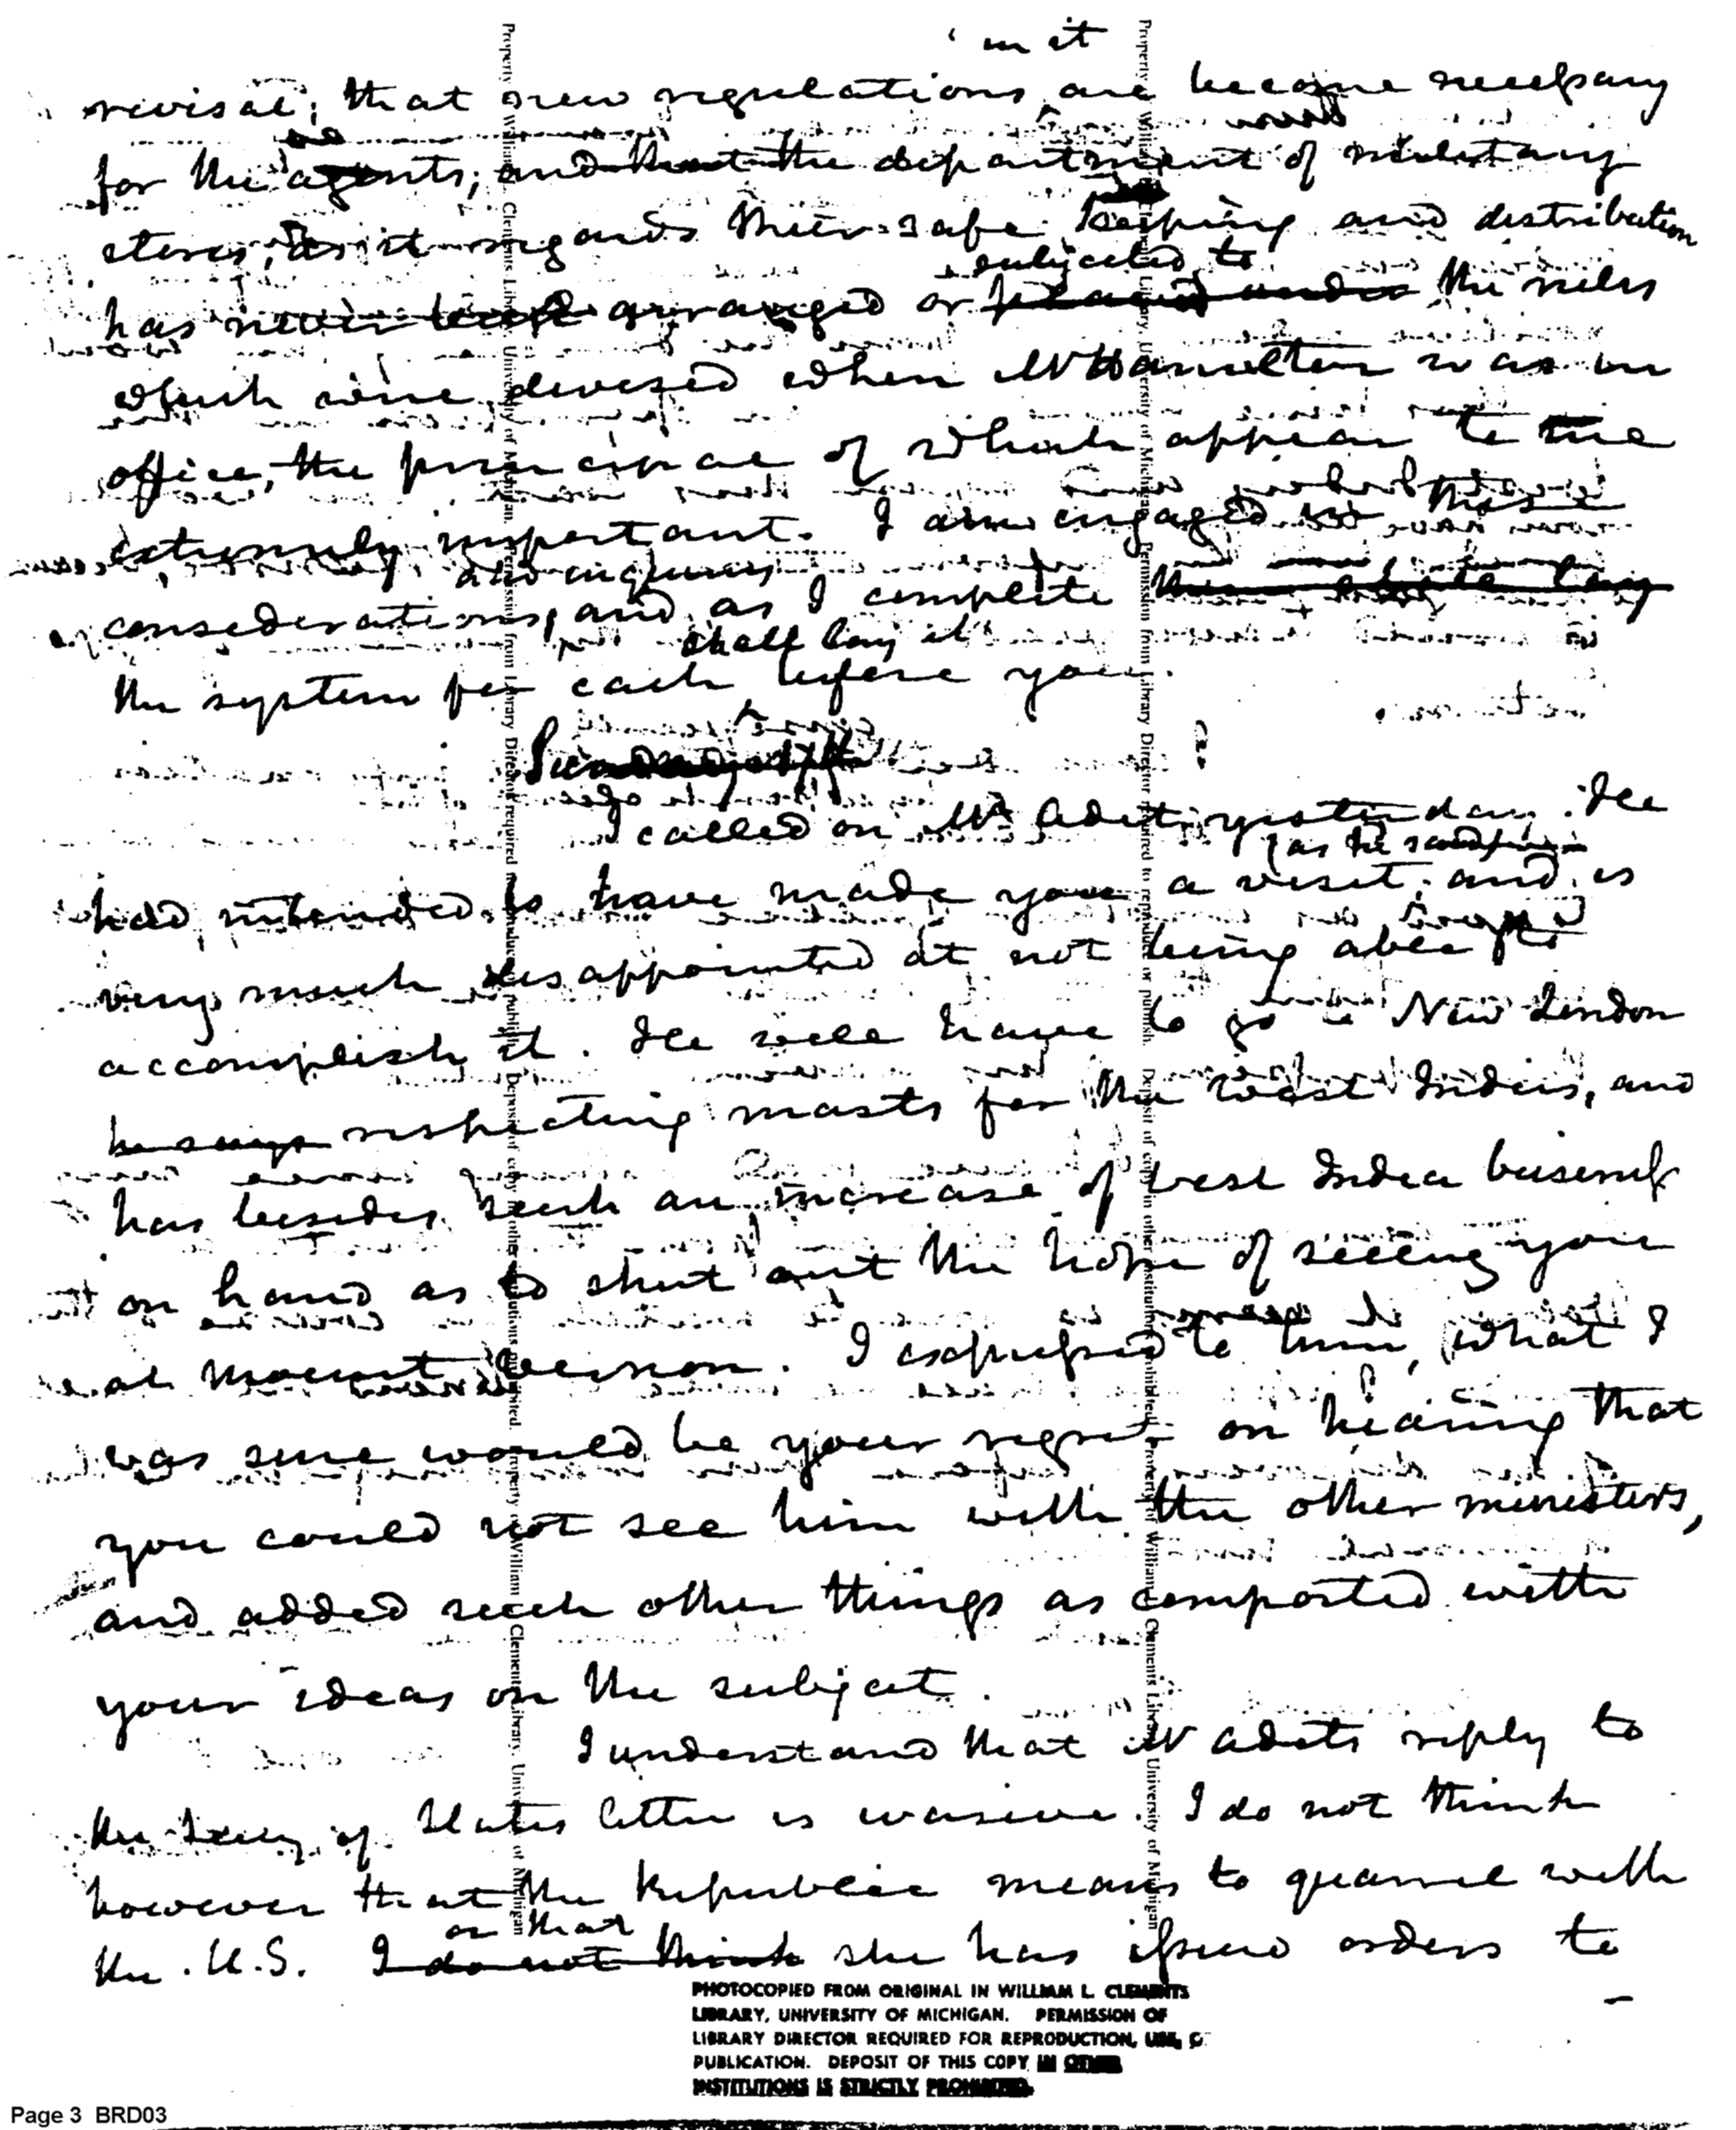 in it
revisal; that new regulations are become necessary
for the agents; and that the department of military
stores, as it regards their safe keeping and distribution
subjected to
has never been arranged or placed under the rules
which were devised when Mr Hamilton was in
office, the principle of which appear to me
extremely important. I am engaged in these
and inquiries
considerations, and as I complete
shall lay it
the system for each before you.
I called on Mr Adet yesterday. He
(as he said)
had intended to have made you a visit, and is
very much disappointed at not being able to
accomplish it. He will have to go to New London
he says respecting masts for the West Indies, and
has besides such an increase of West India business
on hand as to shut out the hope of seeing you
at Mount Vernon. I expressed to him, what I
was sure would be your regret on hearing that
you could not see him with the other ministers,
and added such other things as comported with
your ideas on the subject.
I understand that Mr Adets reply to
the Secy of States letter is evasive. I do not think
however that the Republic means to quarrel with
or that
the U.S. I do not think she has issued orders to
PHOTOCOPIED FROM ORIGINAL IN WILLIAM L. CLEMENTS
LIBRARY, UNIVERSITY OF MICHIGAN. PERMISSION OF
LIBRARY DIRECTOR REQUIRED FOR REPRODUCTION, USE, O
PUBLICATION. DEPOSIT OF THIS COPY IN OTHER
INSTITUTIONS IS STRICTLY PROHIBITED.
Page 3 BRD03
Property of William Clements Library, University of Michigan. Permission from Library Director required to reproduce or publish. Deposit of copy in other institutions prohibited. Property of William Clements Library, University of Michigan
Property of William Clements Library, University of Michigan. Permission from Library Director required to reproduce or publish. Deposit of copy in other institutions prohibited. Property of William Clements Library, University of Michigan